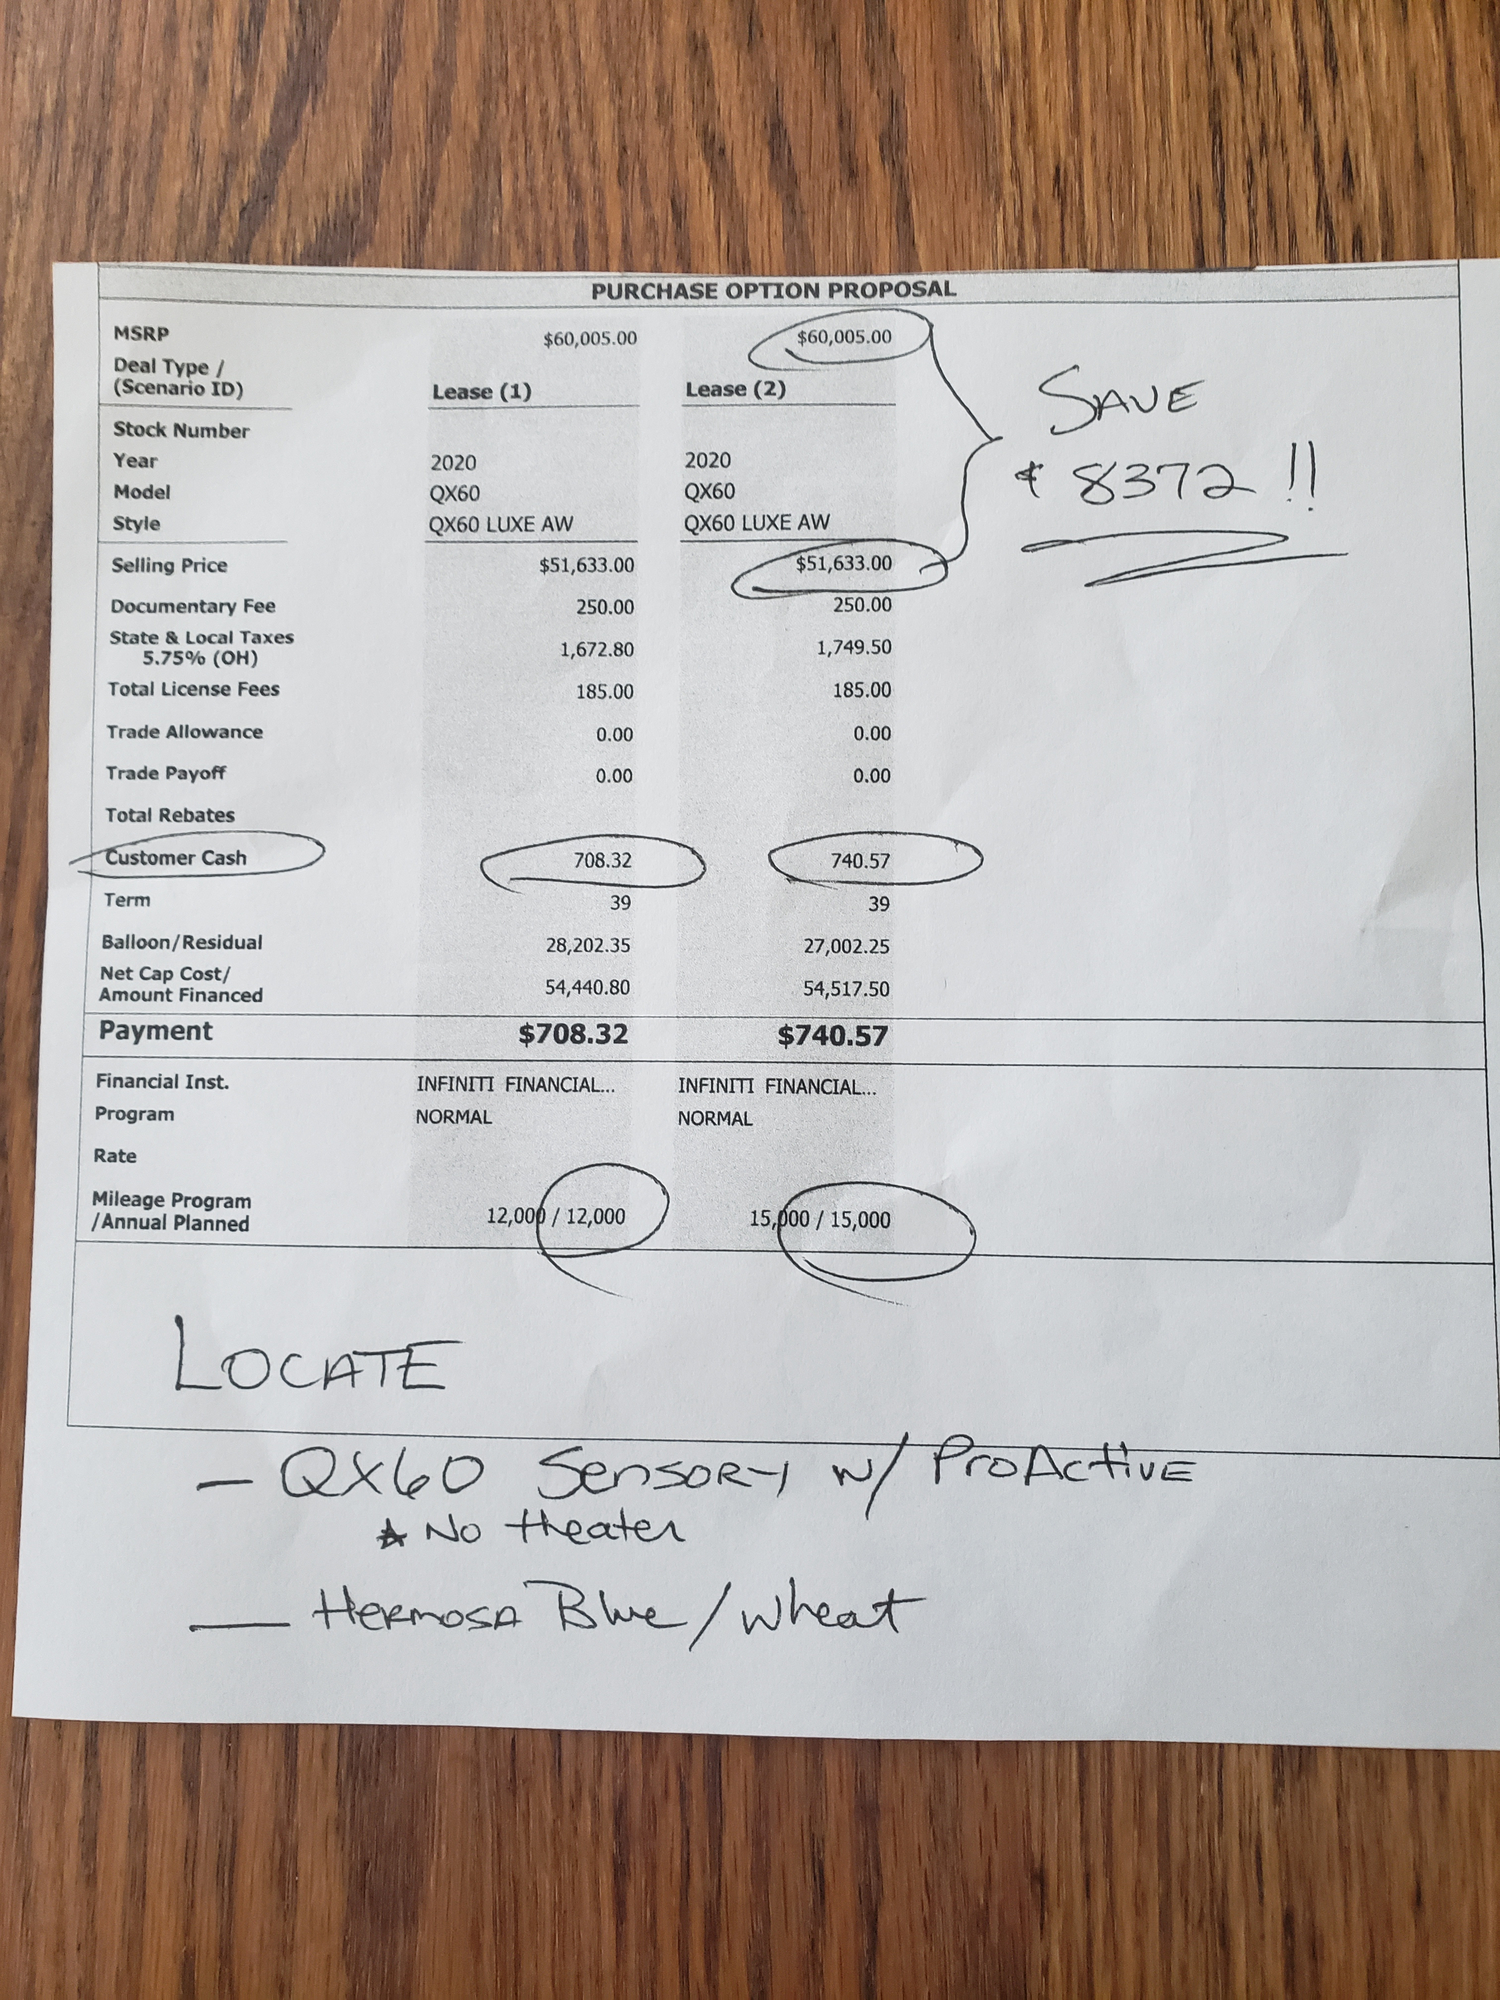 PURCHASE OPTION PROPOSAL
MSRP $60,005.00 $60,005.00
Deal Type /
(Scenario ID) Lease (1) Lease (2)
SAVE
$ 8372 !!
Stock Number
Year 2020 2020
Model QX60 QX60
Style QX60 LUXE AW QX60 LUXE AW
Selling Price $51,633.00 $51,633.00
Documentary Fee 250.00 250.00
State & Local Taxes
5.75% (OH) 1,672.80 1,749.50
Total License Fees 185.00 185.00
Trade Allowance 0.00 0.00
Trade Payoff 0.00 0.00
Total Rebates
Customer Cash 708.32 740.57
Term 39 39
Balloon/Residual 28,202.35 27,002.25
Net Cap Cost/
Amount Financed 54,440.80 54,517.50
Payment $708.32 $740.57
Financial Inst. INFINITI FINANCIAL... INFINITI FINANCIAL...
Program NORMAL NORMAL
Rate
Mileage Program
/Annual Planned 12,000 / 12,000 15,000 / 15,000
LOCATE
— QX60 Sensory w/ ProActive
★ No theater
— Hermosa Blue / Wheat